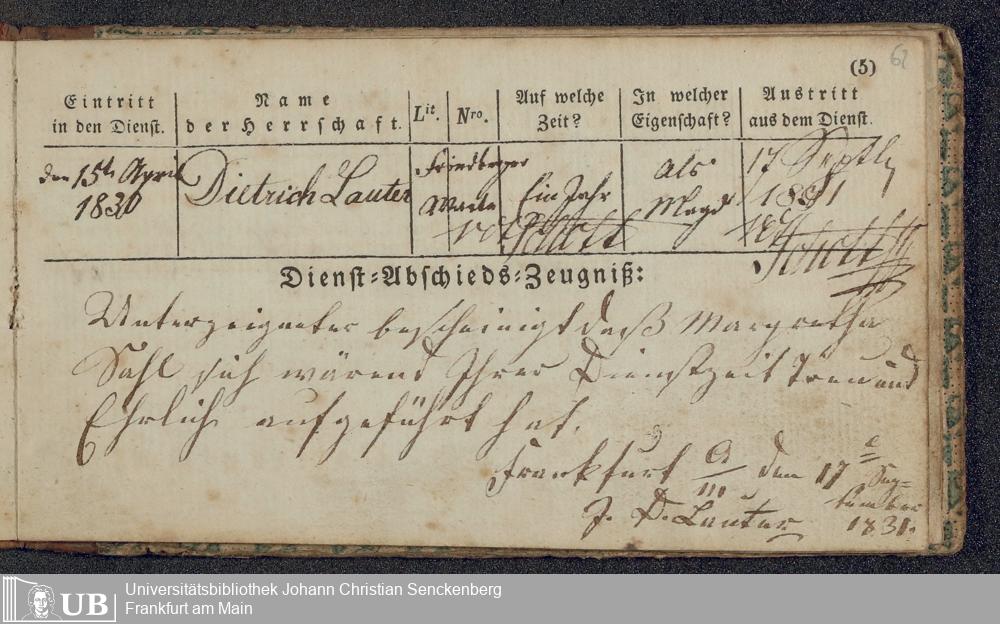 (5)
62
Eintritt in den Dienst.
Name der Herrschaft.
Lit.
Nro.
Auf welche Zeit?
In welcher Eigenschaft?
Austritt aus dem Dienst.
den 15ten April
1830
Dietrich Lauter
Friedberger
Warte
Ein Jahr
Als
Magd
17 Septb
1831
Dienst-Abschieds-Zeugniß:
Unterzeigneter bescheinigt daß Margretha
Sahl sich wärend Ihrer Dienstzeit Treu und
Ehrlich aufgeführt hat.
Frankfurt a/m den 17 Sep-
tember
J. D. Lauter 1831.
UB
Universitätsbibliothek Johann Christian Senckenberg
Frankfurt am Main